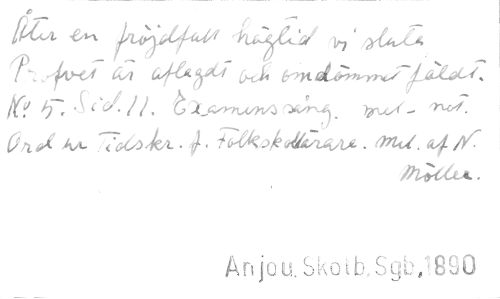 Åter en fröjdfull högtid vi sluta
Profvet är aflagdt och omdömmet fäldt.
No 5. Sid. 11. Examenssång. mel-not.
Ord ur Tidskr. f. Folkskollärare. mel. af N.
Möller.
Anjou, Skolb, Sgb, 1890